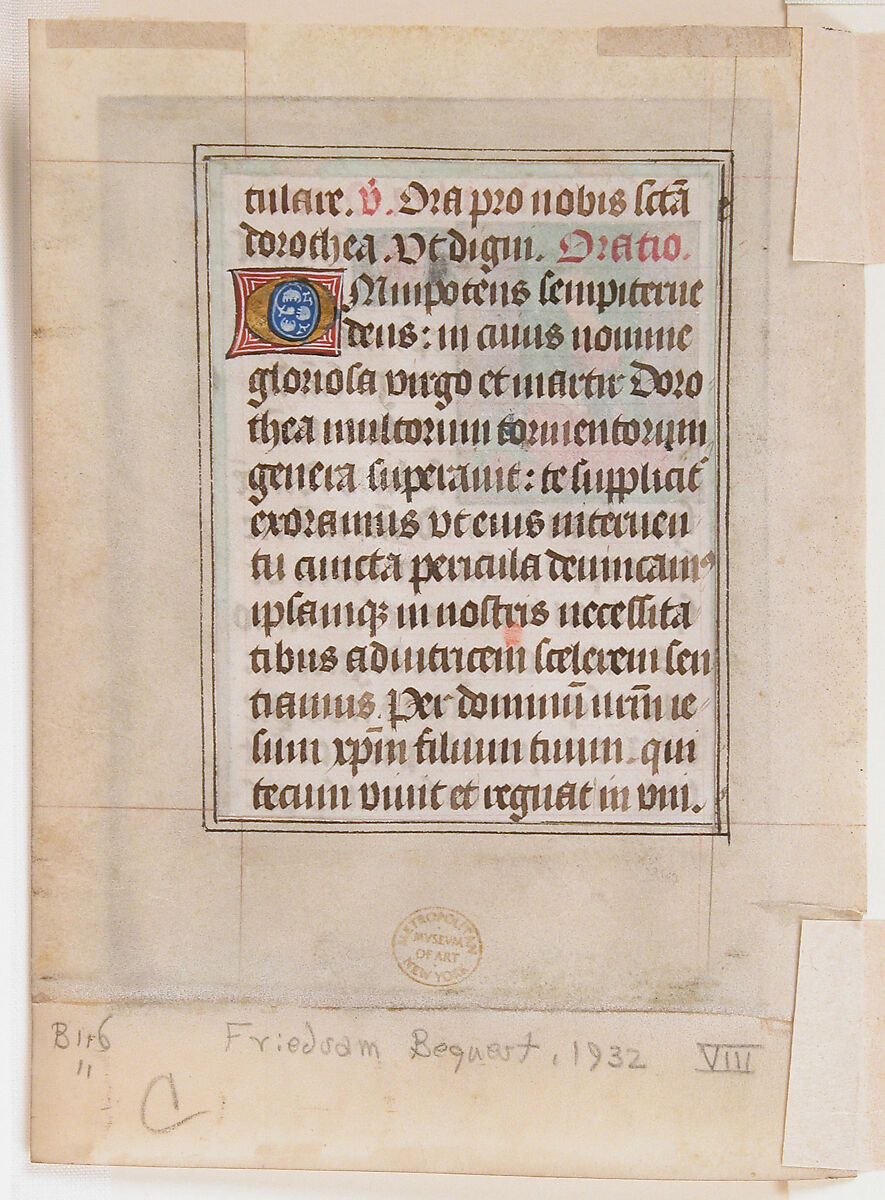 tulare. v̄. Ora pro nobis sctā
dorothea. Vt digni. Oratio.
OMnipotens sempiterne
deus: in cuius nomine
gloriosa virgo et martir Doro
thea multorum tormentorum
genera superauit: te supplicit᷑
exoramus vt eius interuen
tu cuncta pericula deuincamꝰ
ipsamqꝫ in nostris necessita
tibus adiutricem scelerem sen
tiamus. Per dominū nr̄m ie
sum xp̄m filium tuum. qui
tecum viuit et regnat in vni.
METROPOLITAN
MVSEVM
OF ART
NEW YORK
Friedsam Bequest, 1932 VIII
C